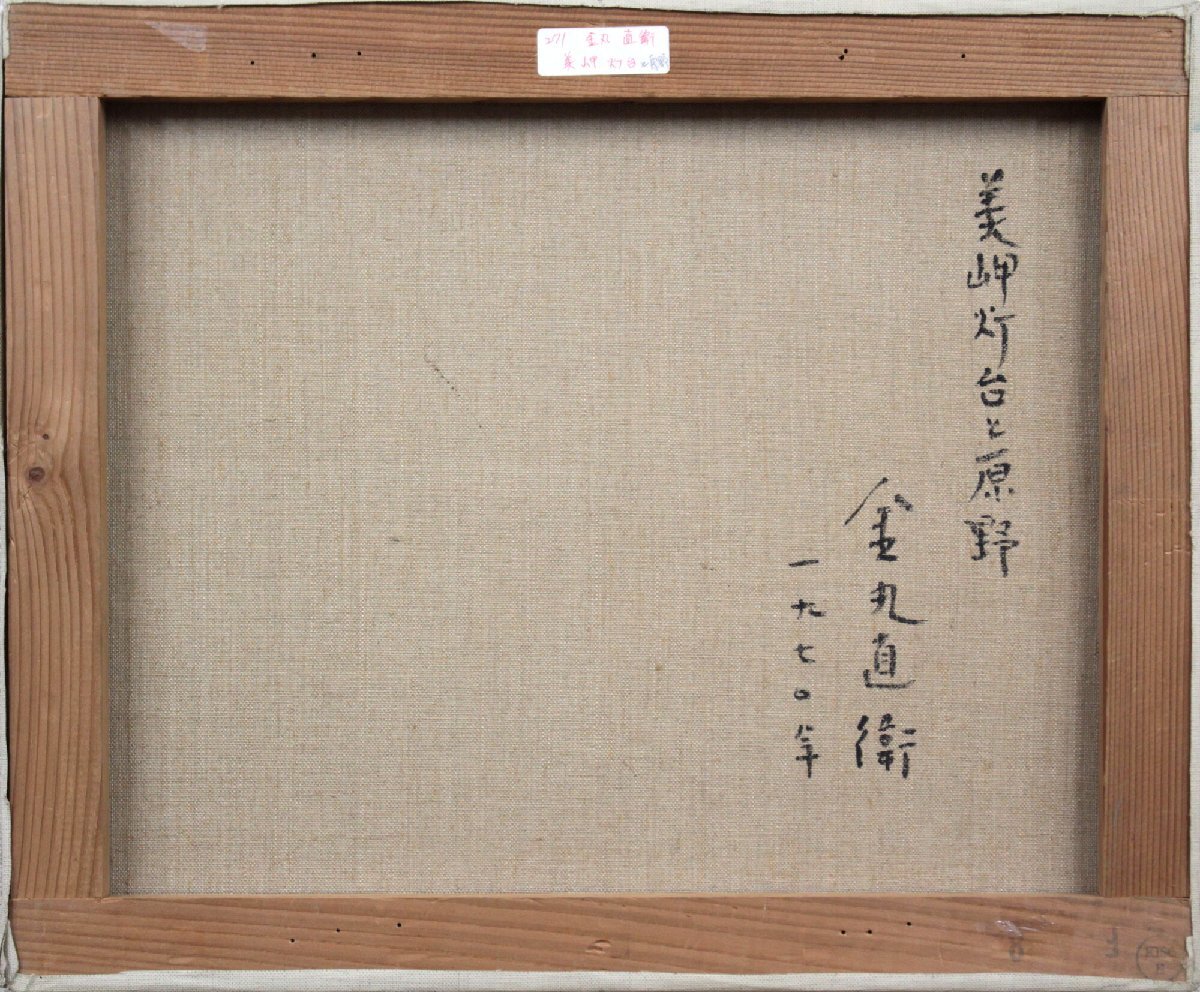 271 金丸 直衛
美岬 灯台と原野
美岬灯台と原野
金丸直衛
一九七〇年